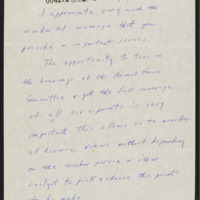 I appreciate very much the
wonderful coverage that you
provide on important issues.
The opportunity to tune in
the hearings of the Armed Forces
Committee & get the full coverage
of all viewpoints is very
important. This allows us to consider
all diverse views without depending
on the anchor person or other
analyst to pick & choose the points
to be made